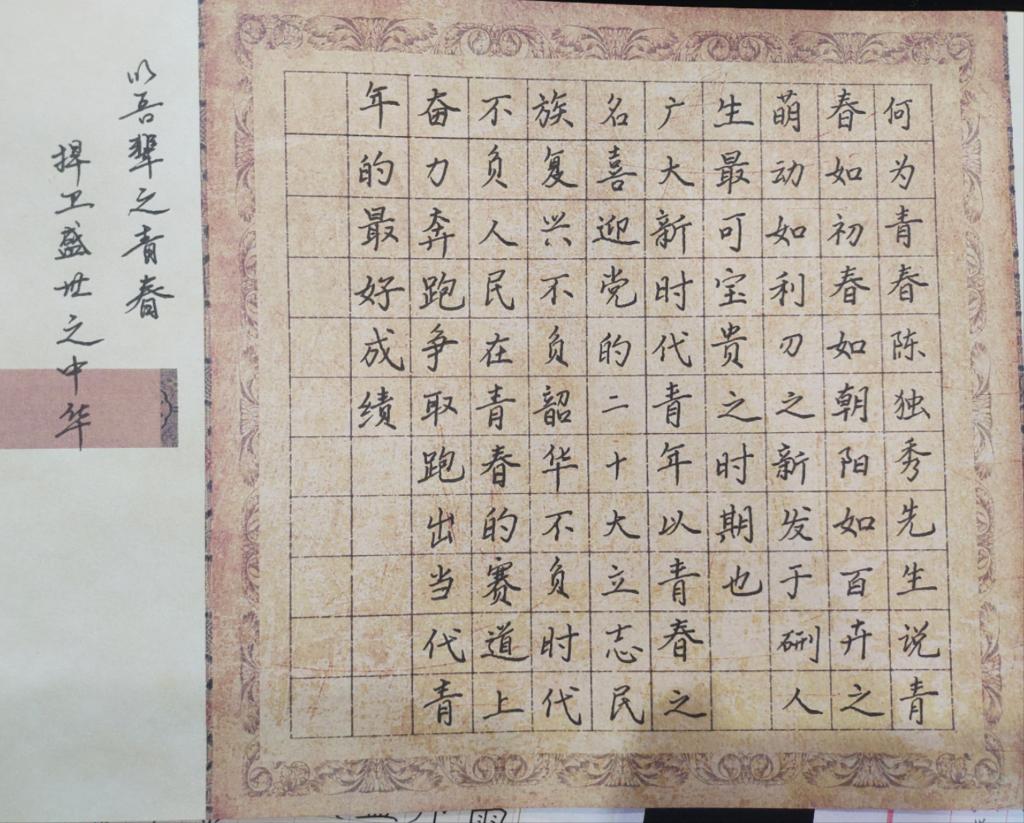 何为青春陈独秀先生说青
春如初春如朝阳如百卉之
萌动如利刃之新发于硎人
生最可宝贵之时期也
广大新时代青年以青春之
名喜迎党的二十大立志民
族复兴不负韶华不负时代
不负人民在青春的赛道上
奋力奔跑争取跑出当代青
年的最好成绩
以吾辈之青春
捍卫盛世之中华